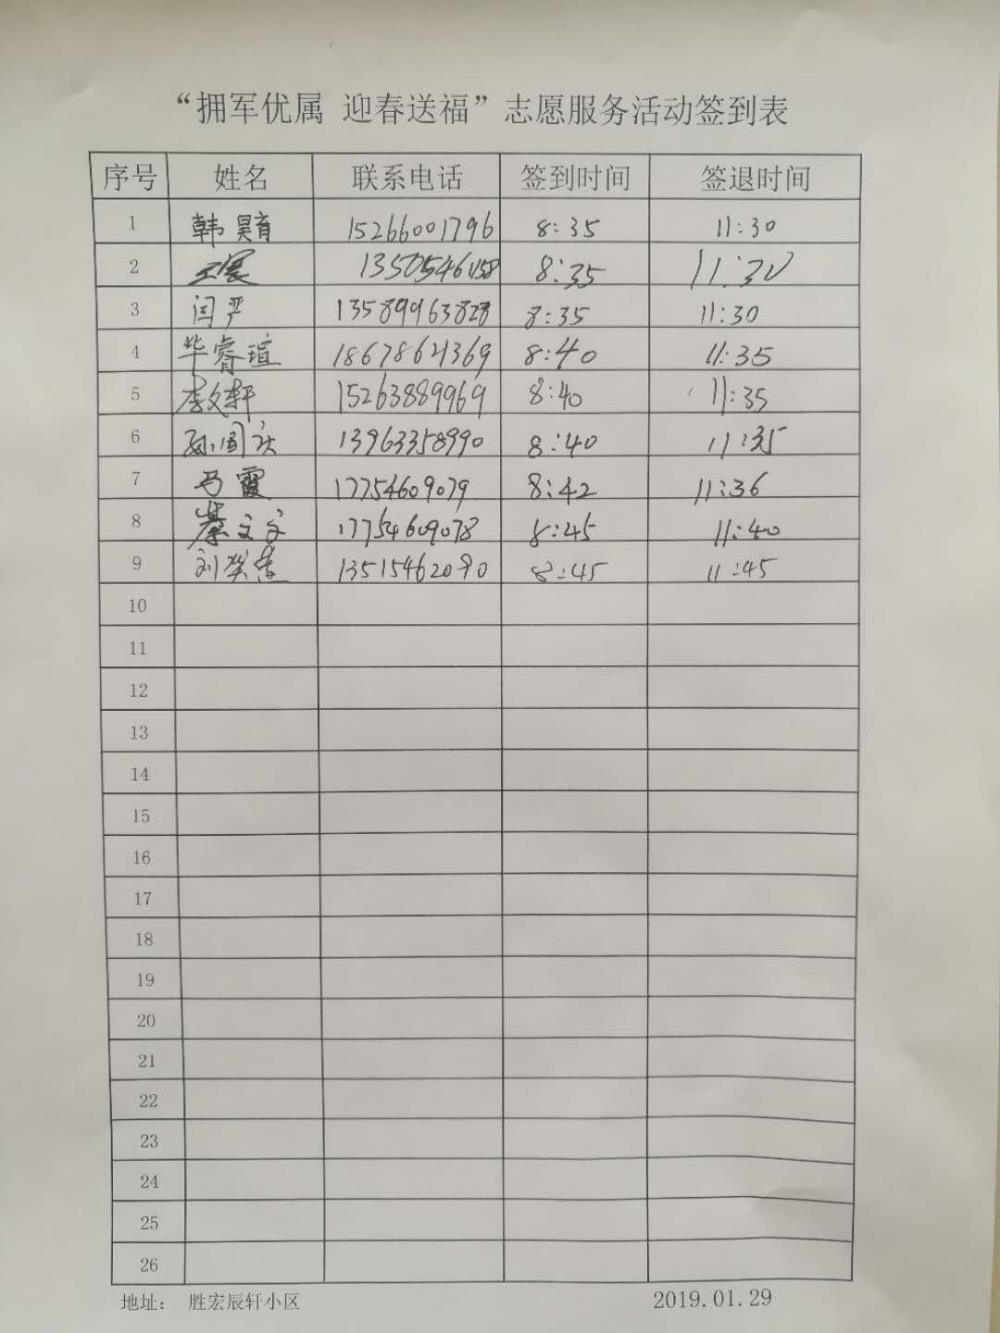 “拥军优属 迎春送福”志愿服务活动签到表
序号 姓名 联系电话 签到时间 签退时间
1 韩昊育 15266001796 8:35 11:30
2 王展 13505461158 8:35 11:30
3 闫严 13589963828 8:35 11:30
4 毕睿瑄 18678621369 8:40 11:35
5 李文轩 15263889969 8:40 11:35
6 孙国庆 13963358990 8:40 11:35
7 马霞 17754609079 8:42 11:36
8 文 17754609078 8:45 11:40
9 刘 13515462090 8:45 11:45
10
11
12
13
14
15
16
17
18
19
20
21
22
23
24
25
26
地址： 胜宏辰轩小区 2019.01.29